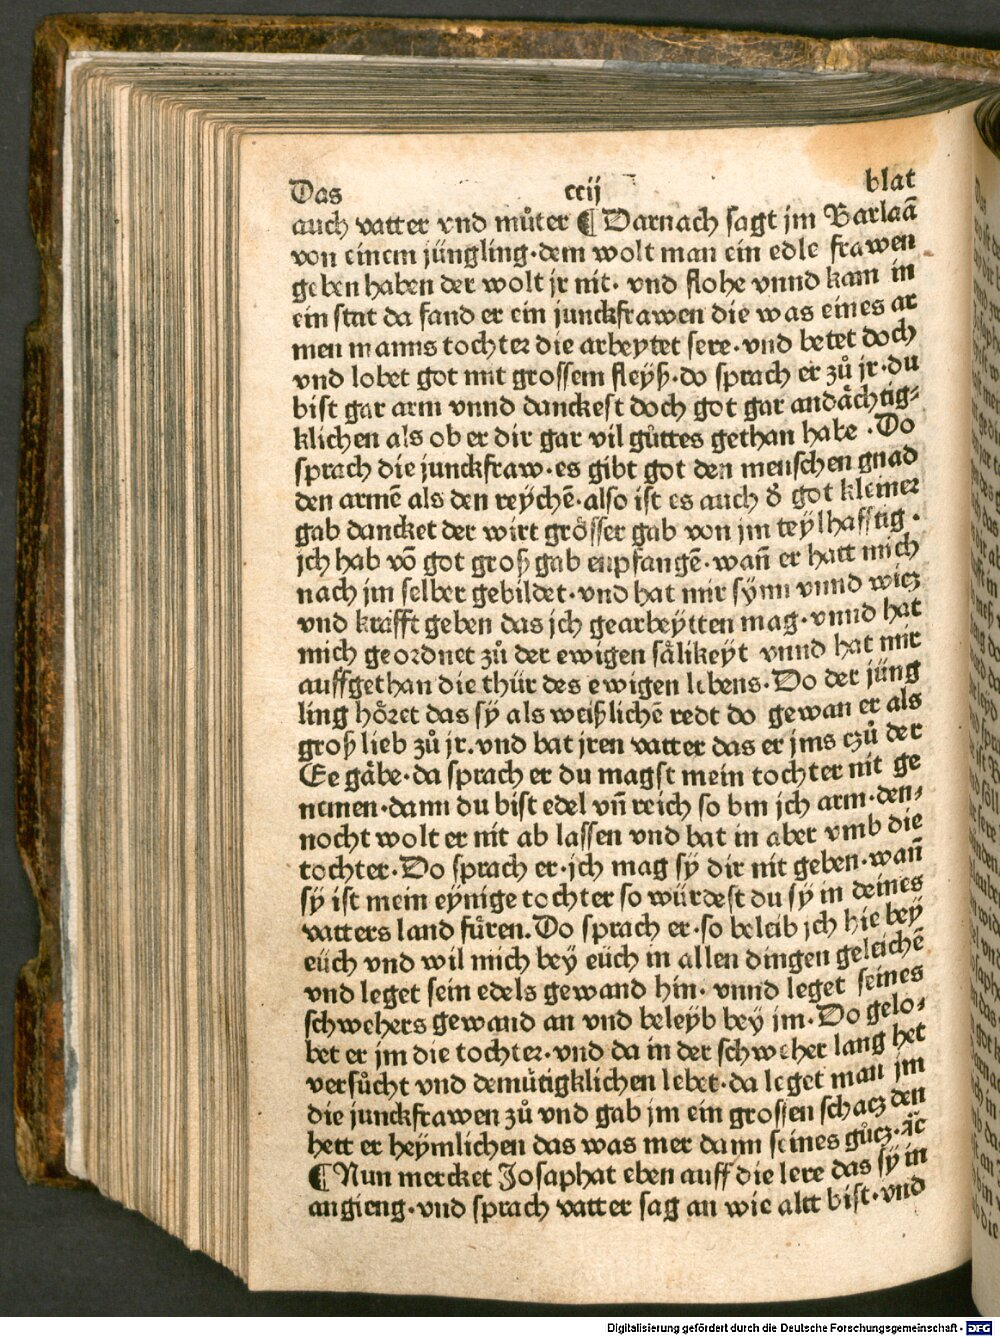 Das ccij blat
auch vatter vnd můter ¶ Darnach sagt jm Barlaā
von einem jüngling·dem wolt man ein edle frawen
geben haben der wolt jr nit· vnd flohe vnnd kam in
ein stat da fand er ein junckfrawen die was eines ar
men manns tochter die arbeytet sere·vnd betet doch
vnd lobet got mit grossem fleÿß·do sprach er zů jr·du
bist gar arm vnnd danckest doch got gar andåchtig⸗
klichen als ob er dir gar vil gůttes gethan habe ·Do
sprach die junckfraw·es gibt got den menschen gnad
den armē als den reÿchē·also ist es auch d̕ got kleiner
gab dancket der wirt grösser gab von jm teÿlhafftig ·
jch hab vō got groß gab enpfangē·wañ er hatt mich
nach jm selber gebildet·vnd hat mir sÿnn vnnd wicz
vnd krafft geben das jch gearbeÿtten mag·vnnd hat
mich geordnet zů der ewigen sålikeÿt vnnd hat mir
auffgethan die thür des ewigen lebens·Do der jüng
ling höret das sÿ als weißlichē redt do gewan er als
groß lieb zů jr.vnd bat jren vatter das er jms czů der
Ee gåbe·da sprach er du magst mein tochter nit ge
nemen·dann du bist edel vñ reich so bin jch arm·den⸗
nocht wolt er nit ab lassen vnd bat in aber vmb die
tochter·Do sprach er·jch mag sÿ dir nit geben·wañ
sÿ ist mein eÿnige tochter so würdest du sÿ in deines
vatters land füren.Do sprach er·so beleib jch hie beÿ
eüch vnd wil mich beÿ eüch in allen dingen geleichē
vnd leget sein edels gewand hin· vnnd leget seines
schwehers gewand an vnd beleÿb beÿ jm·Do gelo⸗
bet er jm die tochter·vnd da in der schweher lang het
versůcht vnd demütigklichen lebet·da leget man jm
die junckfrawen zů vnd gab jm ein grossen schacz den
hett er heÿmlichen das was mer dann seines gůcz·ꝛc̄
¶ Nun mercket Josaphat eben auff die lere das sÿ in
angieng·vnd sprach vatter sag an wie altt bist·vnd
Digitalisierung gefördert durch die Deutsche Forschungsgemeinschaft - DFG